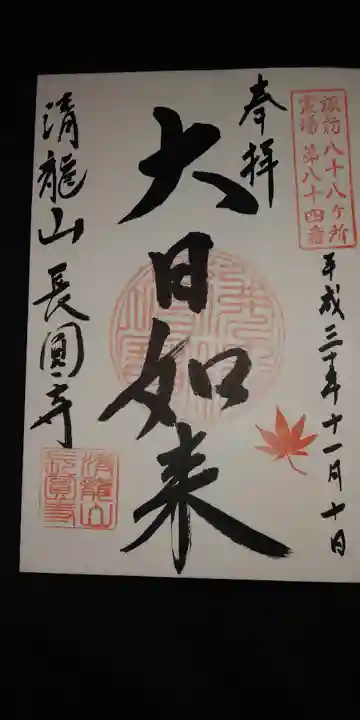 諏訪八十八ヶ所
霊場第八十四番
奉拝
平成三十年十一月十日
大日如来
清龍山長圓寺
清龍山
長圓寺